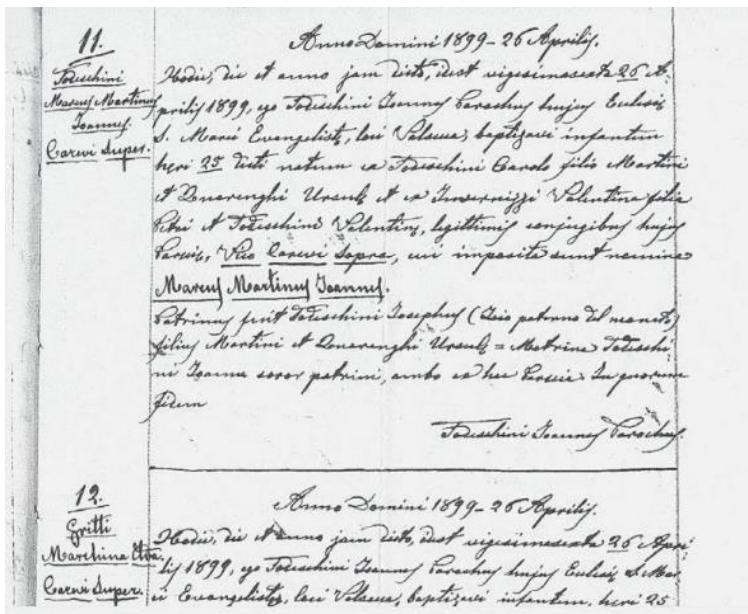 11.
Todeschini
Marcus Martinus
Joannes.
Carevi Super.
Anno Domini 1899 - 26 Aprilis.
Hodie, die et anno jam dicto, idest vigesimasexta 26 A-
prilis 1899, ego Todeschini Joannes Parochus hujus Eulesiæ
S. Marci Evangelistæ, loci Valsecca, baptizavi infantem
heri 25 dicti natum ex Todeschini Carolo filio Martini
et Quarenghi Ursulæ et ex Invernizzi Valentina filia
Petri et Todeschini Valentinæ, legittimis conjugibus hujus
Parociæ, Vico Carevi Sopra, cui imposita sunt nomina
Marcus Martinus Joannes.
Patrinus fuit Todeschini Josephus (Zio paterno del neonato)
filius Martini et Quarenghi Ursulæ = Matrina Todeschi-
ni Joanna soror patrini, ambo ex hac Parocia. In quorum
fidem
Todeschini Joannes Parochus.
12.
Gritti
Marchina
Carevi Super.
Anno Domini 1899 - 26 Aprilis.
Hodie, die et anno jam dicto, idest vigesimasexta 26 Apri-
lis 1899, ego Todeschini Joannes Parochus hujus Eulesiæ S. Mar-
ci Evangelistæ, loci Valsecca, baptizavi infantem, heri 25